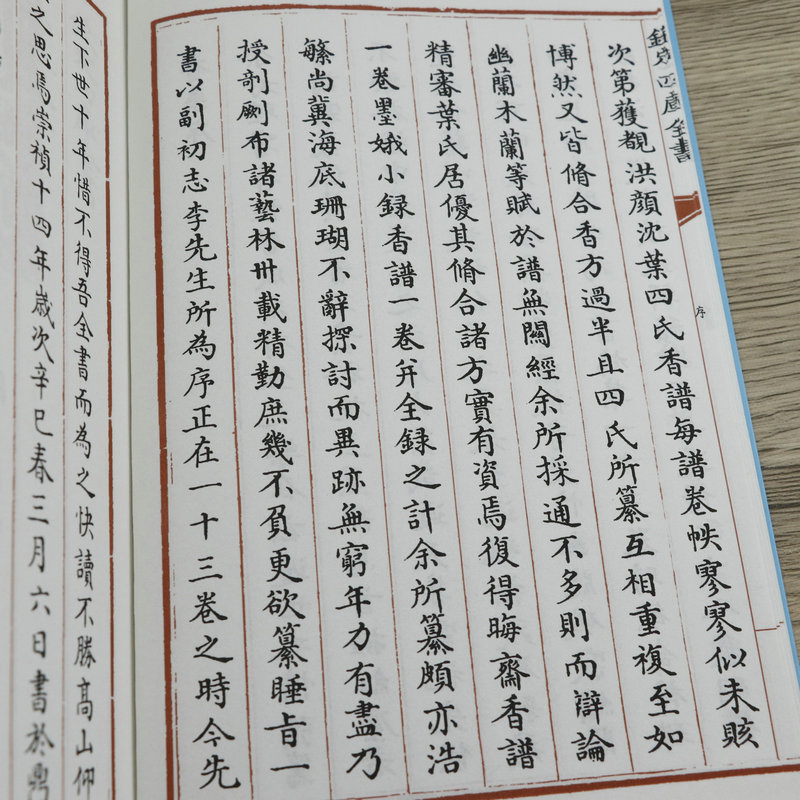 欽定四庫全書
序
次第獲覩洪顏沈葉四氏香譜每譜卷帙寥寥似未賅
博然又皆脩合香方過半且四氏所纂互相重複至如
幽蘭木蘭等賦於譜無闗經余所採通不多則而辯論
精審葉氏居優其脩合諸方實有資焉復得晦齋香譜
一卷墨娥小録香譜一卷并全録之計余所纂頗亦浩
緐尚冀海底珊瑚不辭探討而異跡無窮年力有盡乃
授剞劂布諸藝林卅載精勤庶幾不負更欲纂睡旨一
書以副初志李先生所為序正在一十三卷之時今先
生下世十年惜不得吾全書而為之快讀不勝高山仰
之思焉崇禎十四年歲次辛巳春三月六日書於鼎